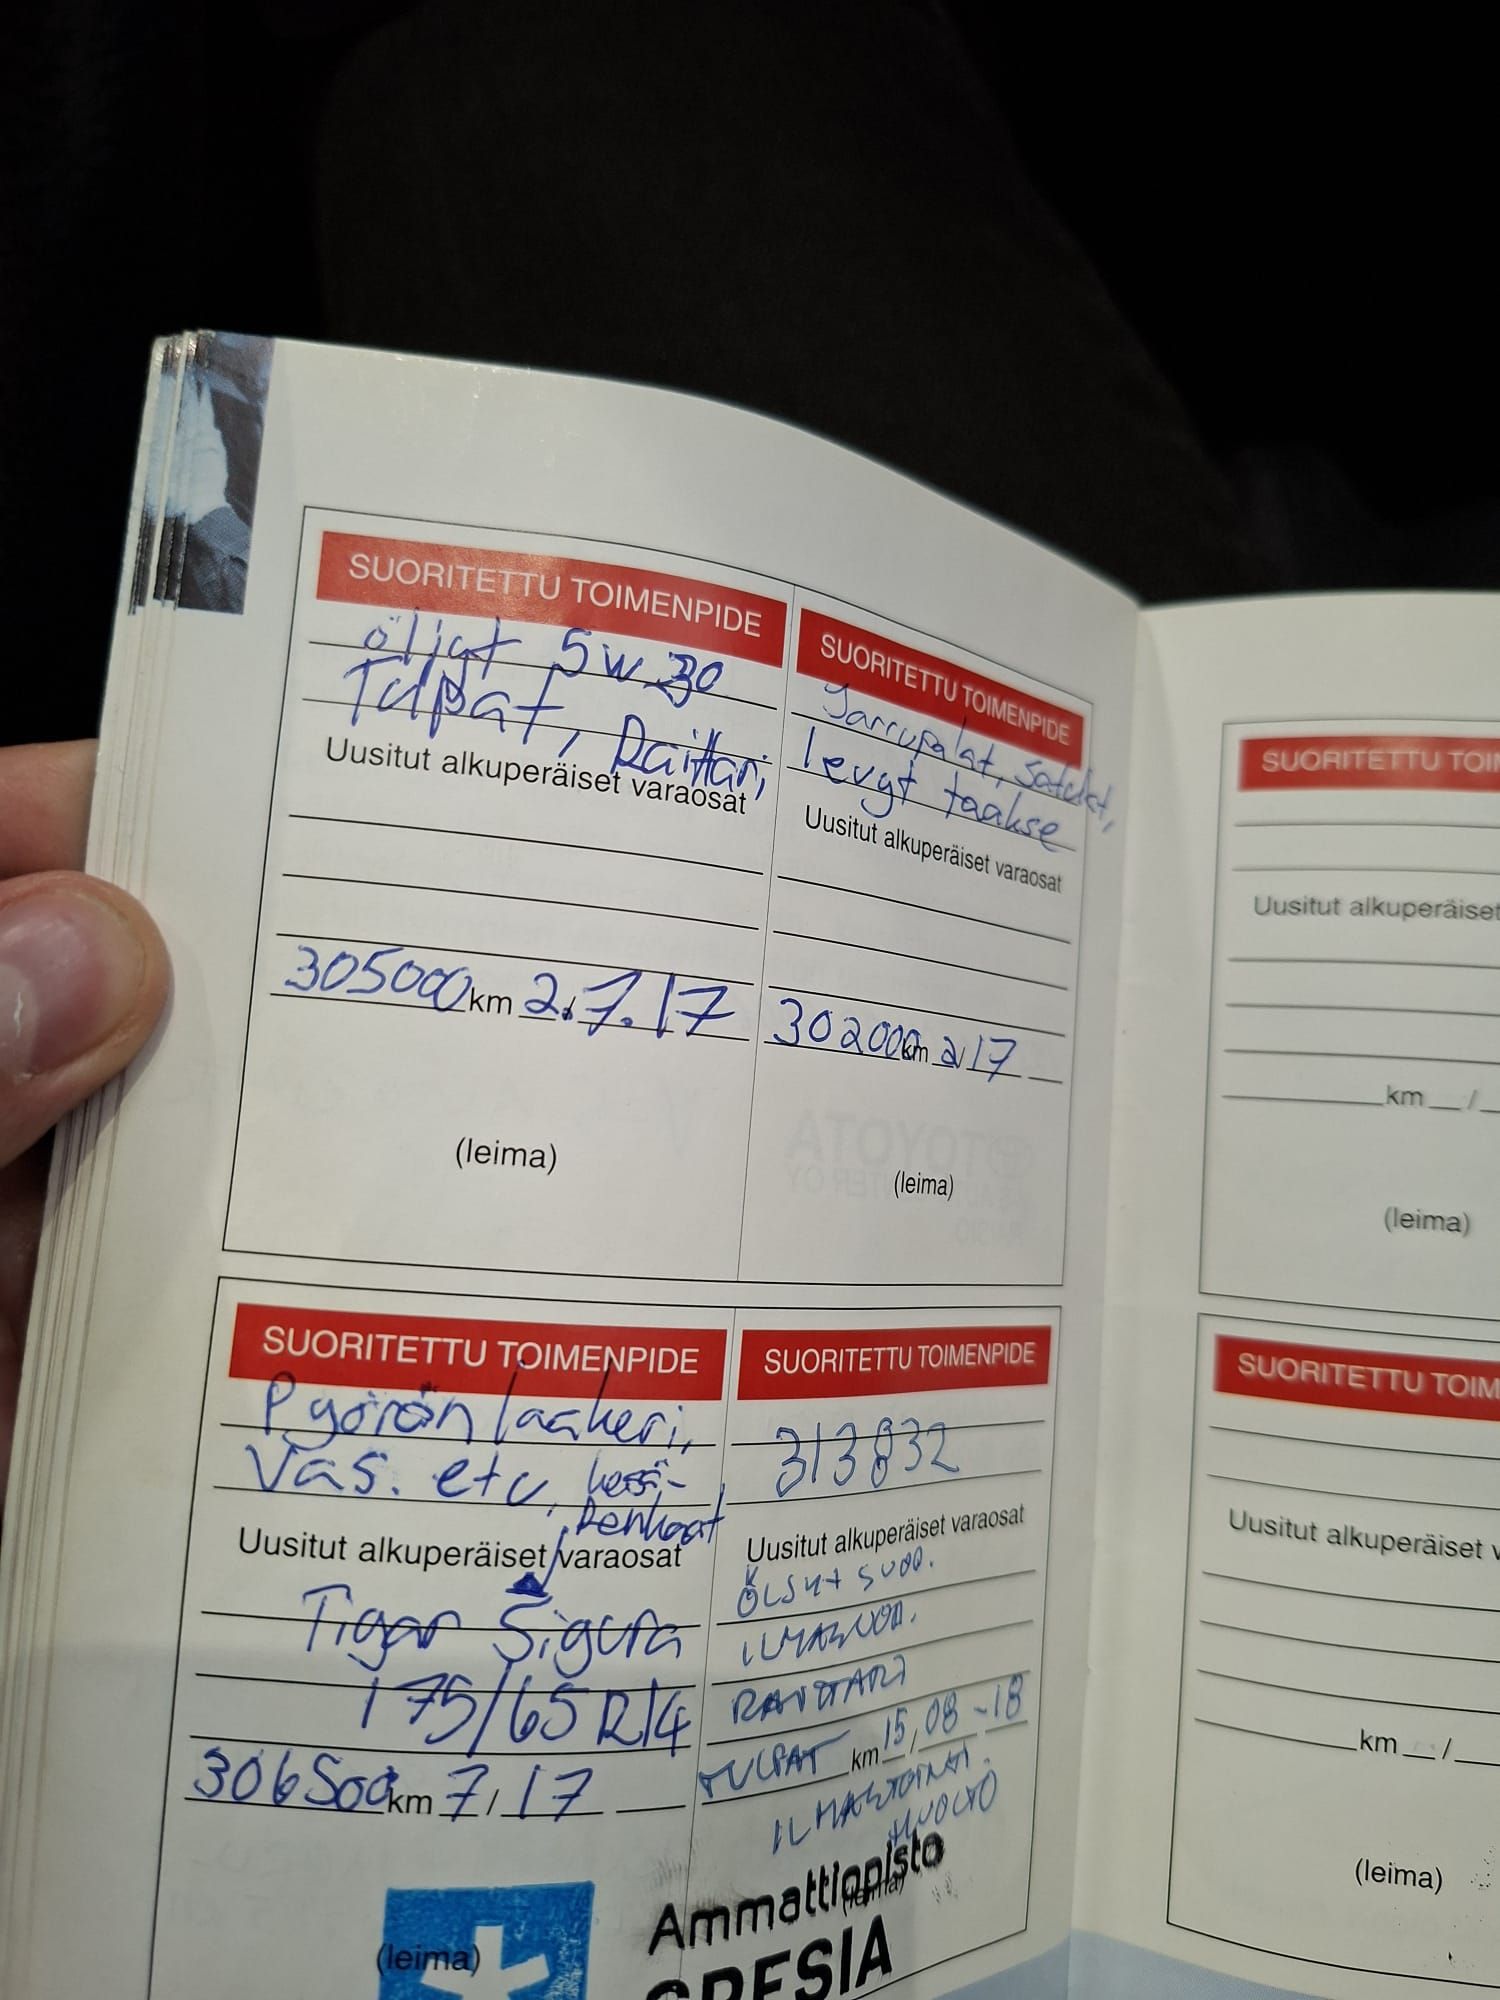 SUORITETTU TOIMENPIDE
öljyt 5w30
Tulpat, Raittari,
Uusitut alkuperäiset varaosat
305000 km 2.7.17
(leima)
SUORITETTU TOIMENPIDE
Jarrupalat, satulat,
levyt taakse
Uusitut alkuperäiset varaosat
302000 km 2/17
(leima)
SUORITETTU TOIMENPIDE
Pyörön laakeri,
Vas. etu, kesä-
Renkaat
Uusitut alkuperäiset varaosat
Tigar Sigura
175/65 R14
306500 km 7/17
(leima)
SUORITETTU TOIMENPIDE
313832
Uusitut alkuperäiset varaosat
ÖLJYT SUOD.
ILMANSUOD.
RAITTARI
TULPAT km 15,08-18
ILMASTOINTI.
HUOLTO
(leima)
Ammattiopisto
SPESIA
SUORITETTU TOIM
Uusitut alkuperäiset
km /
(leima)
SUORITETTU TOIM
Uusitut alkuperäiset v
km /
(leima)